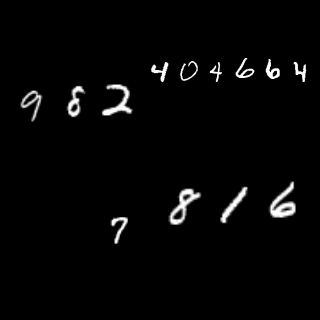 404664
982
816
7